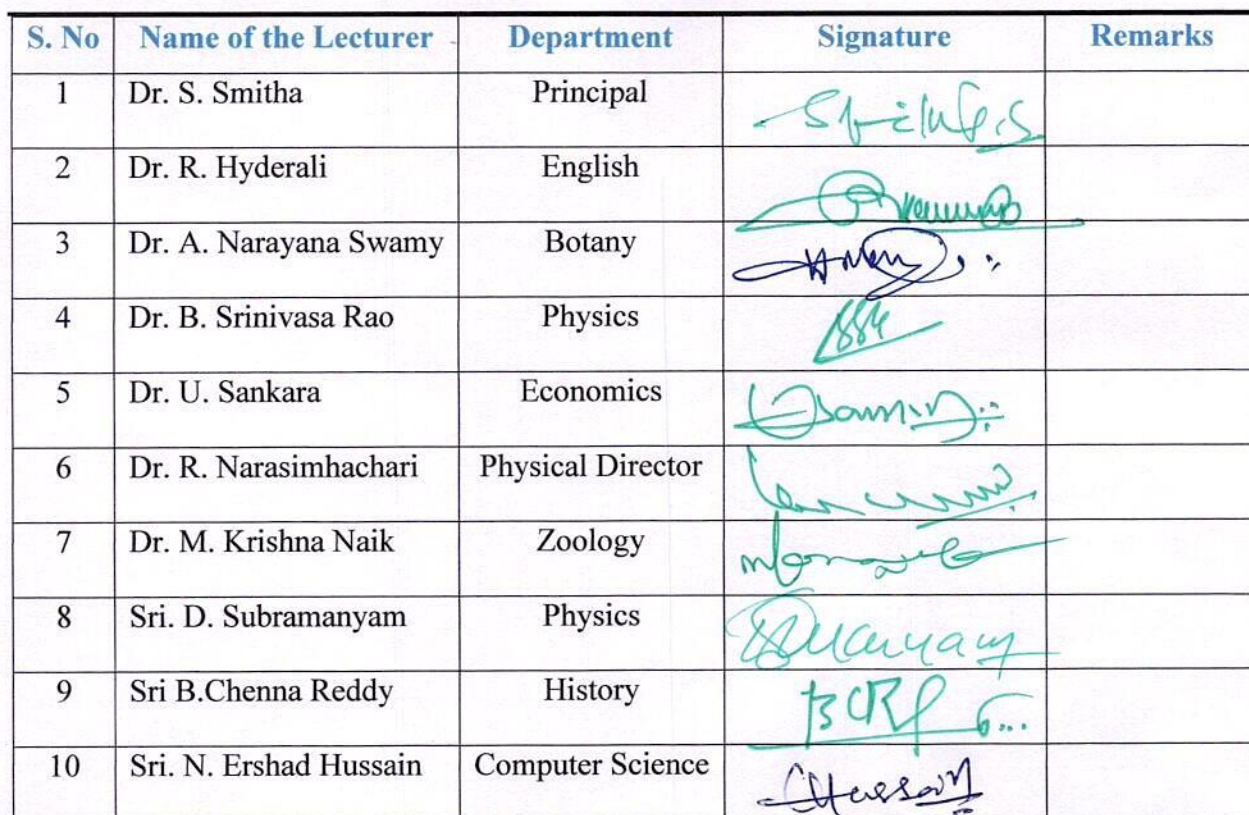 S. No Name of the Lecturer Department Signature Remarks
1 Dr. S. Smitha Principal
2 Dr. R. Hyderali English
3 Dr. A. Narayana Swamy Botany
4 Dr. B. Srinivasa Rao Physics
5 Dr. U. Sankara Economics
6 Dr. R. Narasimhachari Physical Director
7 Dr. M. Krishna Naik Zoology
8 Sri. D. Subramanyam Physics
9 Sri B.Chenna Reddy History
10 Sri. N. Ershad Hussain Computer Science